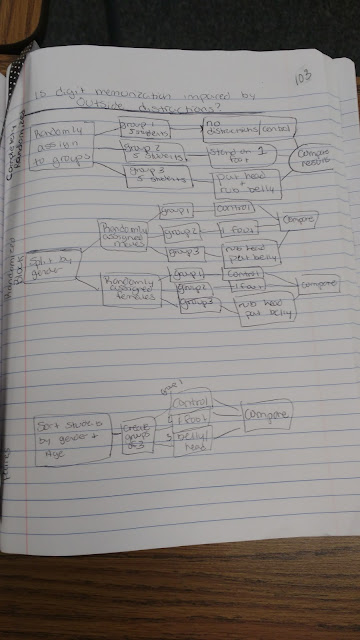 103
is digit memorization impaired by
outside distractions?
Completely
Randomized
Randomly
assign
to groups
group 1
5 students
no
distractions/control
group 2
5 students
stand on 1
foot
group 3
5 students
pat head
+
rub belly
Compare
results
Block
Split by
gender
Randomly
assigned males
group1
control
group2
1 foot
group3
rub head
pat belly
compare
Randomly
assigned
females
group1
control
group2
1 foot
group3
rub head
pat belly
compare
Sort students
by gender +
Age
create
groups
of 3
control
1 foot
belly/
head
compare